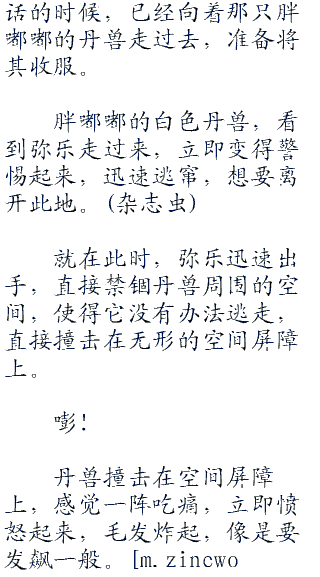 话的时候，已经向着那只胖
嘟嘟的丹兽走过去，准备将
其收服。
胖嘟嘟的白色丹兽，看
到弥乐走过来，立即变得警
惕起来，迅速逃窜，想要离
开此地。(杂志虫)
就在此时，弥乐迅速出
手，直接禁锢丹兽周围的空
间，使得它没有办法逃走，
直接撞击在无形的空间屏障
上。
嘭！
丹兽撞击在空间屏障
上，感觉一阵吃痛，立即愤
怒起来，毛发炸起，像是要
发飙一般。[m.zincwo